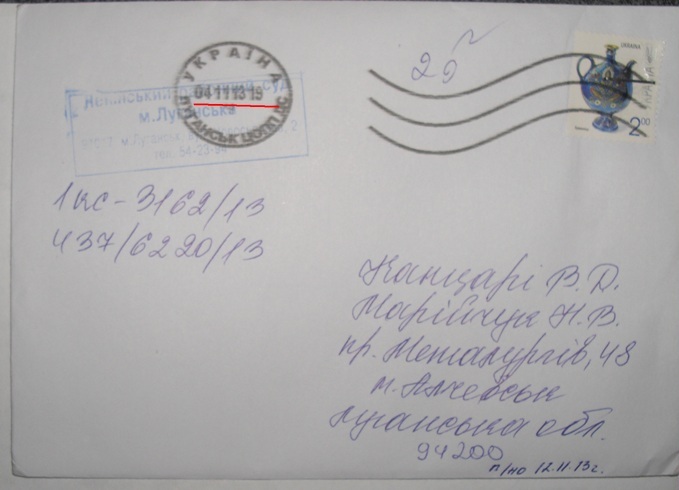 УКРАЇНА
04 11 13 19
ЛУГАНСЬК ЦОПП
Ленінський районний суд
м.Луганська
м.Луганськ
тел. 54-23-
29
УКРАЇНА
2.00
1кс-3162/13
437/6220/13
Канцарі В.Д.
Марійчук Н.В.
пр. Металургів, 48
м. Алчевськ
Луганська обл.
94200
п/но 12.11.13г.